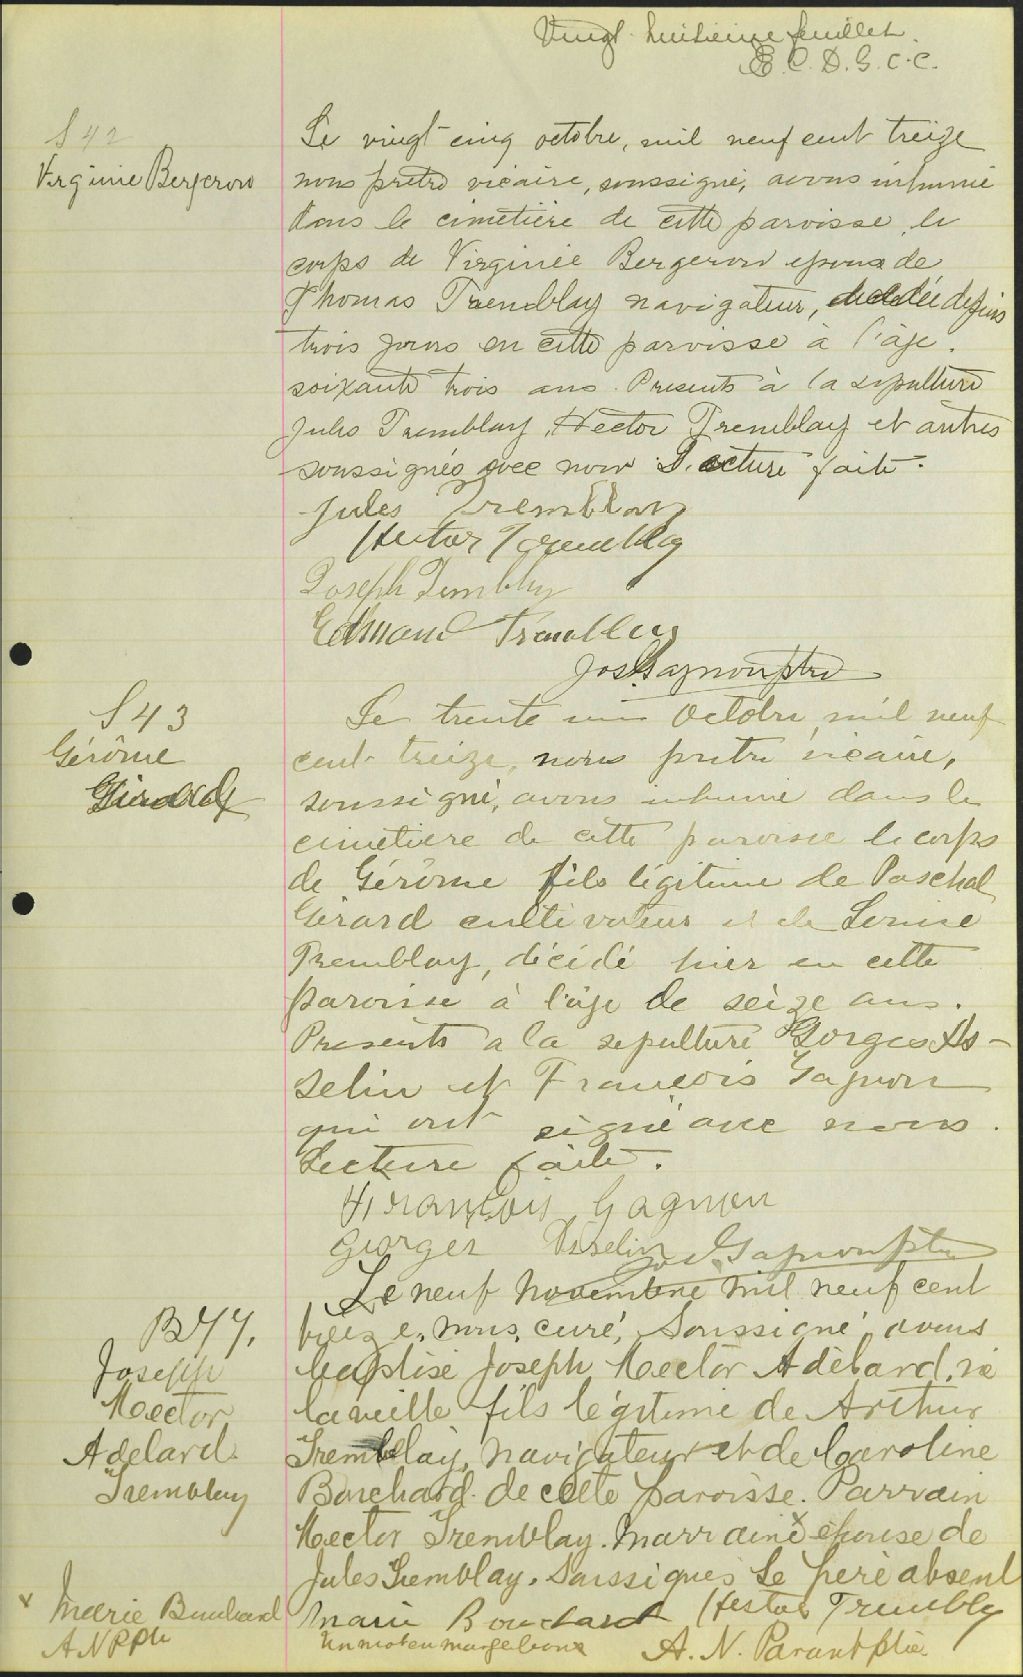 Vingt huitième feuillet.
E. C. D. S. C. C.
S 42
Virginie Bergeron
Le vingt cinq octobre, mil neuf cent treize
nous prêtre vicaire, soussigné, avons inhumé
dans le cimetière de cette paroisse, le
corps de Virginie Bergeron epouse de
Thomas Tremblay navigateur, décédée depuis
trois jours en cette paroisse à l'âge.
soixante trois ans. Presents à la sepulture
Jules Tremblay, Hector Tremblay et autres
soussignés avec nous. Lecture faite.
Jules Tremblay
Hector Tremblay
Joseph Trembly
Edmond Tremblay
Jos. Gagnon ptre
S 43
Gérôme
Girard
Le trente un Octobre mil neuf
cent treize, nous pretre vicaire,
soussigné, avons inhumé dans le
cimetiere de cette paroisse le corps
de Gérôme fils légitime de Paschal
Girard cultivateur et de Louise
Tremblay, décédé hier en cette
paroisse à l'âge de seize ans.
Presents a la sepulture Gorges As-
selin et Francois Gagnon
qui ont signé avec nous.
Lecture faite.
François Gagnon
Georges Asselin Jos. Gagnon ptre
B 77.
Joseph
Hector
Adelard
Tremblay
Le neuf Novembre mil neuf cent
treize, nous, curé, Soussigné, avons
baptisé Joseph Hector Adélard, né
la veille fils légitime de Arthur
Tremblay, navigateur et de Caroline
Bouchard de cette paroisse. Parrain
Hector Tremblay. Marraine x épouse de
Jules Tremblay. Soussignés Le père absent
x Marie Bouchard
A N P Ptre
Marie Bouchard Hector Trembly
Un mot en marge bon x A. N. Parant ptre